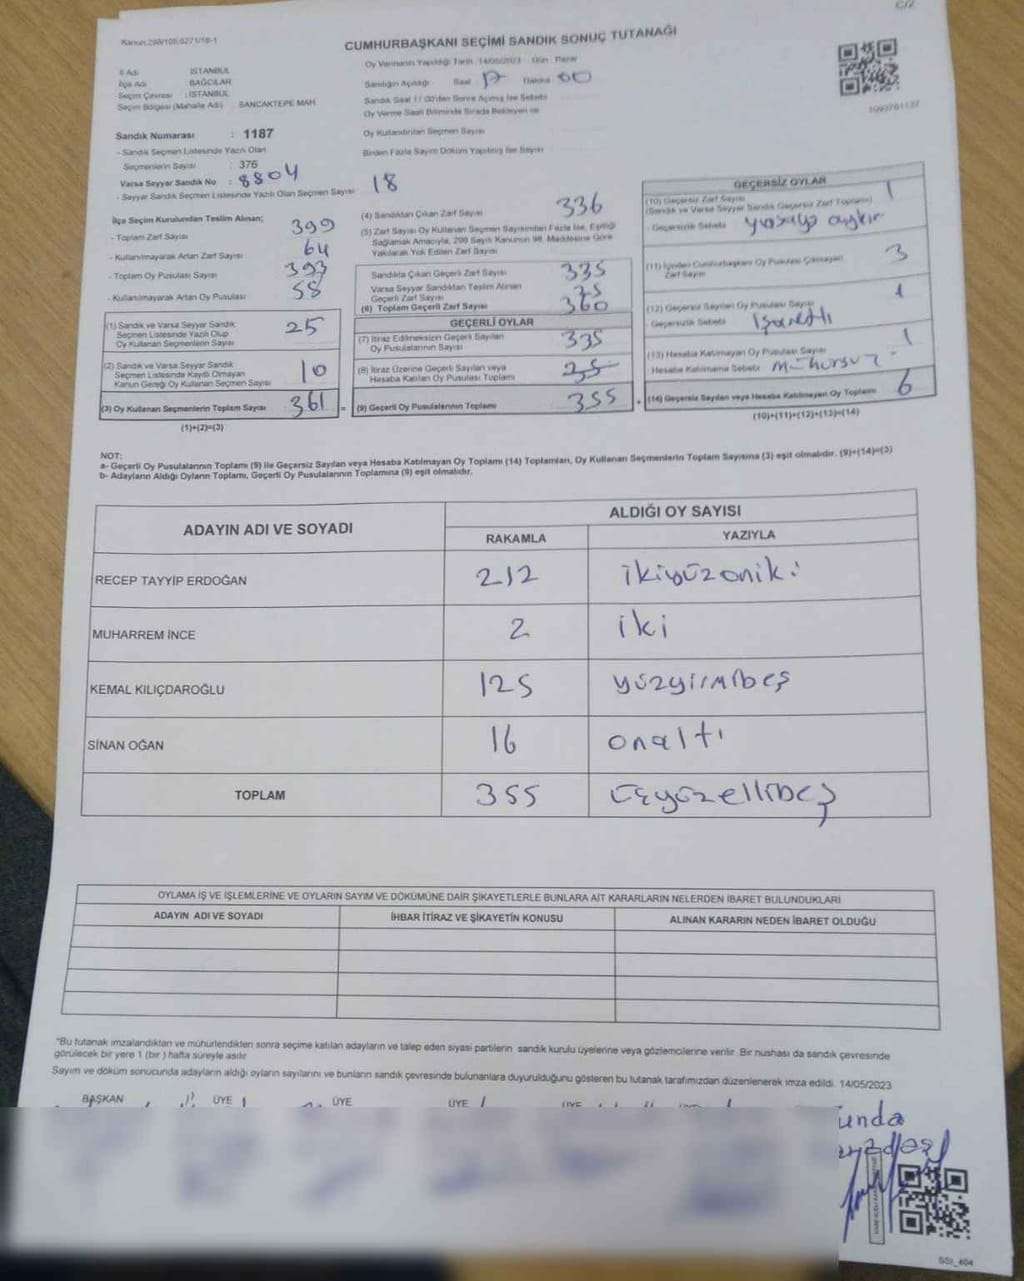 C/2
Kanun:298/105,6271/18-1
CUMHURBAŞKANI SEÇİMİ SANDIK SONUÇ TUTANAĞI
İl Adı : İSTANBUL
İlçe Adı : BAĞCILAR
Seçim Çevresi : İSTANBUL
Seçim Bölgesi (Mahalle Adı) : SANCAKTEPE MAH.
Sandık Numarası : 1187
- Sandık Seçmen Listesinde Yazılı Olan
Seçmenlerin Sayısı : 376
Varsa Seyyar Sandık No : 8804
- Seyyar Sandık Seçmen Listesinde Yazılı Olan Seçmen Sayısı 18
Oy Vermenin Yapıldığı Tarih : 14/05/2023 Gün : Pazar
Sandığın Açıldığı Saat 17 Dakika 00
Sandık Saat 17:00'den Sonra Açılmış İse Sebebi
Oy Verme Saati Bitiminde Sırada Bekleyen
Oy Kullandırılan Seçmen Sayısı
Birden Fazla Sayım Döküm Yapılmış İse Sayısı
1093761137
İlçe Seçim Kurulundan Teslim Alınan;
- Toplam Zarf Sayısı 399
- Kullanılmayarak Artan Zarf Sayısı 64
- Toplam Oy Pusulası Sayısı 393
- Kullanılmayarak Artan Oy Pusulası 58
(1) Sandık ve Varsa Seyyar Sandık
Seçmen Listesinde Yazılı Olup
Oy Kullanan Seçmenlerin Sayısı 25
(2) Sandık ve Varsa Seyyar Sandık
Seçmen Listesinde Kayıtlı Olmayan
Kanun Gereği Oy Kullanan Seçmen Sayısı 10
(3) Oy Kullanan Seçmenlerin Toplam Sayısı 361 =
(1)+(2)=(3)
(4) Sandıktan Çıkan Zarf Sayısı 336
(5) Zarf Sayısı Oy Kullanan Seçmen Sayısından Fazla İse, Eşitliği
Sağlamak Amacıyla, 298 Sayılı Kanunun 98. Maddesine Göre
Yakılarak Yok Edilen Zarf Sayısı
Sandıkta Çıkan Geçerli Zarf Sayısı 335
Varsa Seyyar Sandıktan Teslim Alınan
Geçerli Zarf Sayısı 25
(6) Toplam Geçerli Zarf Sayısı 360
GEÇERLİ OYLAR
(7) İtiraz Edilmeksizin Geçerli Sayılan
Oy Pusulalarının Sayısı 335
(8) İtiraz Üzerine Geçerli Sayılan veya
Hesaba Katılan Oy Pusulası Toplamı
(9) Geçerli Oy Pusulalarının Toplamı 355 +
GEÇERSİZ OYLAR
(10) Geçersiz Zarf Sayısı
(Sandık ve Varsa Seyyar Sandık Geçersiz Zarf Toplamı) 1
- Geçersizlik Sebebi yasaya aykırı
(11) İçinden Cumhurbaşkanı Oy Pusulası Çıkmayan
Zarf Sayısı 3
(12) Geçersiz Sayılan Oy Pusulası Sayısı 1
- Geçersizlik Sebebi İşaretli
(13) Hesaba Katılmayan Oy Pusulası Sayısı 1
- Hesaba Katılmama Sebebi mühürsüz
(14) Geçersiz Sayılan veya Hesaba Katılmayan Oy Toplamı 6
(10)+(11)+(12)+(13)=(14)
NOT:
a- Geçerli Oy Pusulalarının Toplamı (9) ile Geçersiz Sayılan veya Hesaba Katılmayan Oy Toplamı (14) Toplamları, Oy Kullanan Seçmenlerin Toplam Sayısına (3) eşit olmalıdır. (9)+(14)=(3)
b- Adayların Aldığı Oyların Toplamı, Geçerli Oy Pusulalarının Toplamına (9) eşit olmalıdır.
ADAYIN ADI VE SOYADI
ALDIĞI OY SAYISI
RAKAMLA YAZIYLA
RECEP TAYYİP ERDOĞAN 212 ikiyüzoniki
MUHARREM İNCE 2 iki
KEMAL KILIÇDAROĞLU 125 yüzyirmibeş
SİNAN OĞAN 16 onaltı
TOPLAM 355 üçyüzellibeş
OYLAMA İŞ VE İŞLEMLERİNE VE OYLARIN SAYIM VE DÖKÜMÜNE DAİR ŞİKAYETLERLE BUNLARA AİT KARARLARIN NELERDEN İBARET BULUNDUKLARI
ADAYIN ADI VE SOYADI İHBAR İTİRAZ VE ŞİKAYETİN KONUSU ALINAN KARARIN NEDEN İBARET OLDUĞU
"Bu tutanak imzalandıktan ve mühürlendikten sonra seçime katılan adayların ve talep eden siyasi partilerin sandık kurulu üyelerine veya gözlemcilerine verilir. Bir nushası da sandık çevresinde
görülecek bir yere 1 (bir ) hafta süreyle asılır.
Sayım ve döküm sonucunda adayların aldığı oyların sayılarını ve bunların sandık çevresinde bulunanlara duyurulduğunu gösteren bu tutanak tarafımızdan düzenlenerek imza edildi. 14/05/2023
BAŞKAN ÜYE ÜYE ÜYE ÜYE
unda
SSI_404